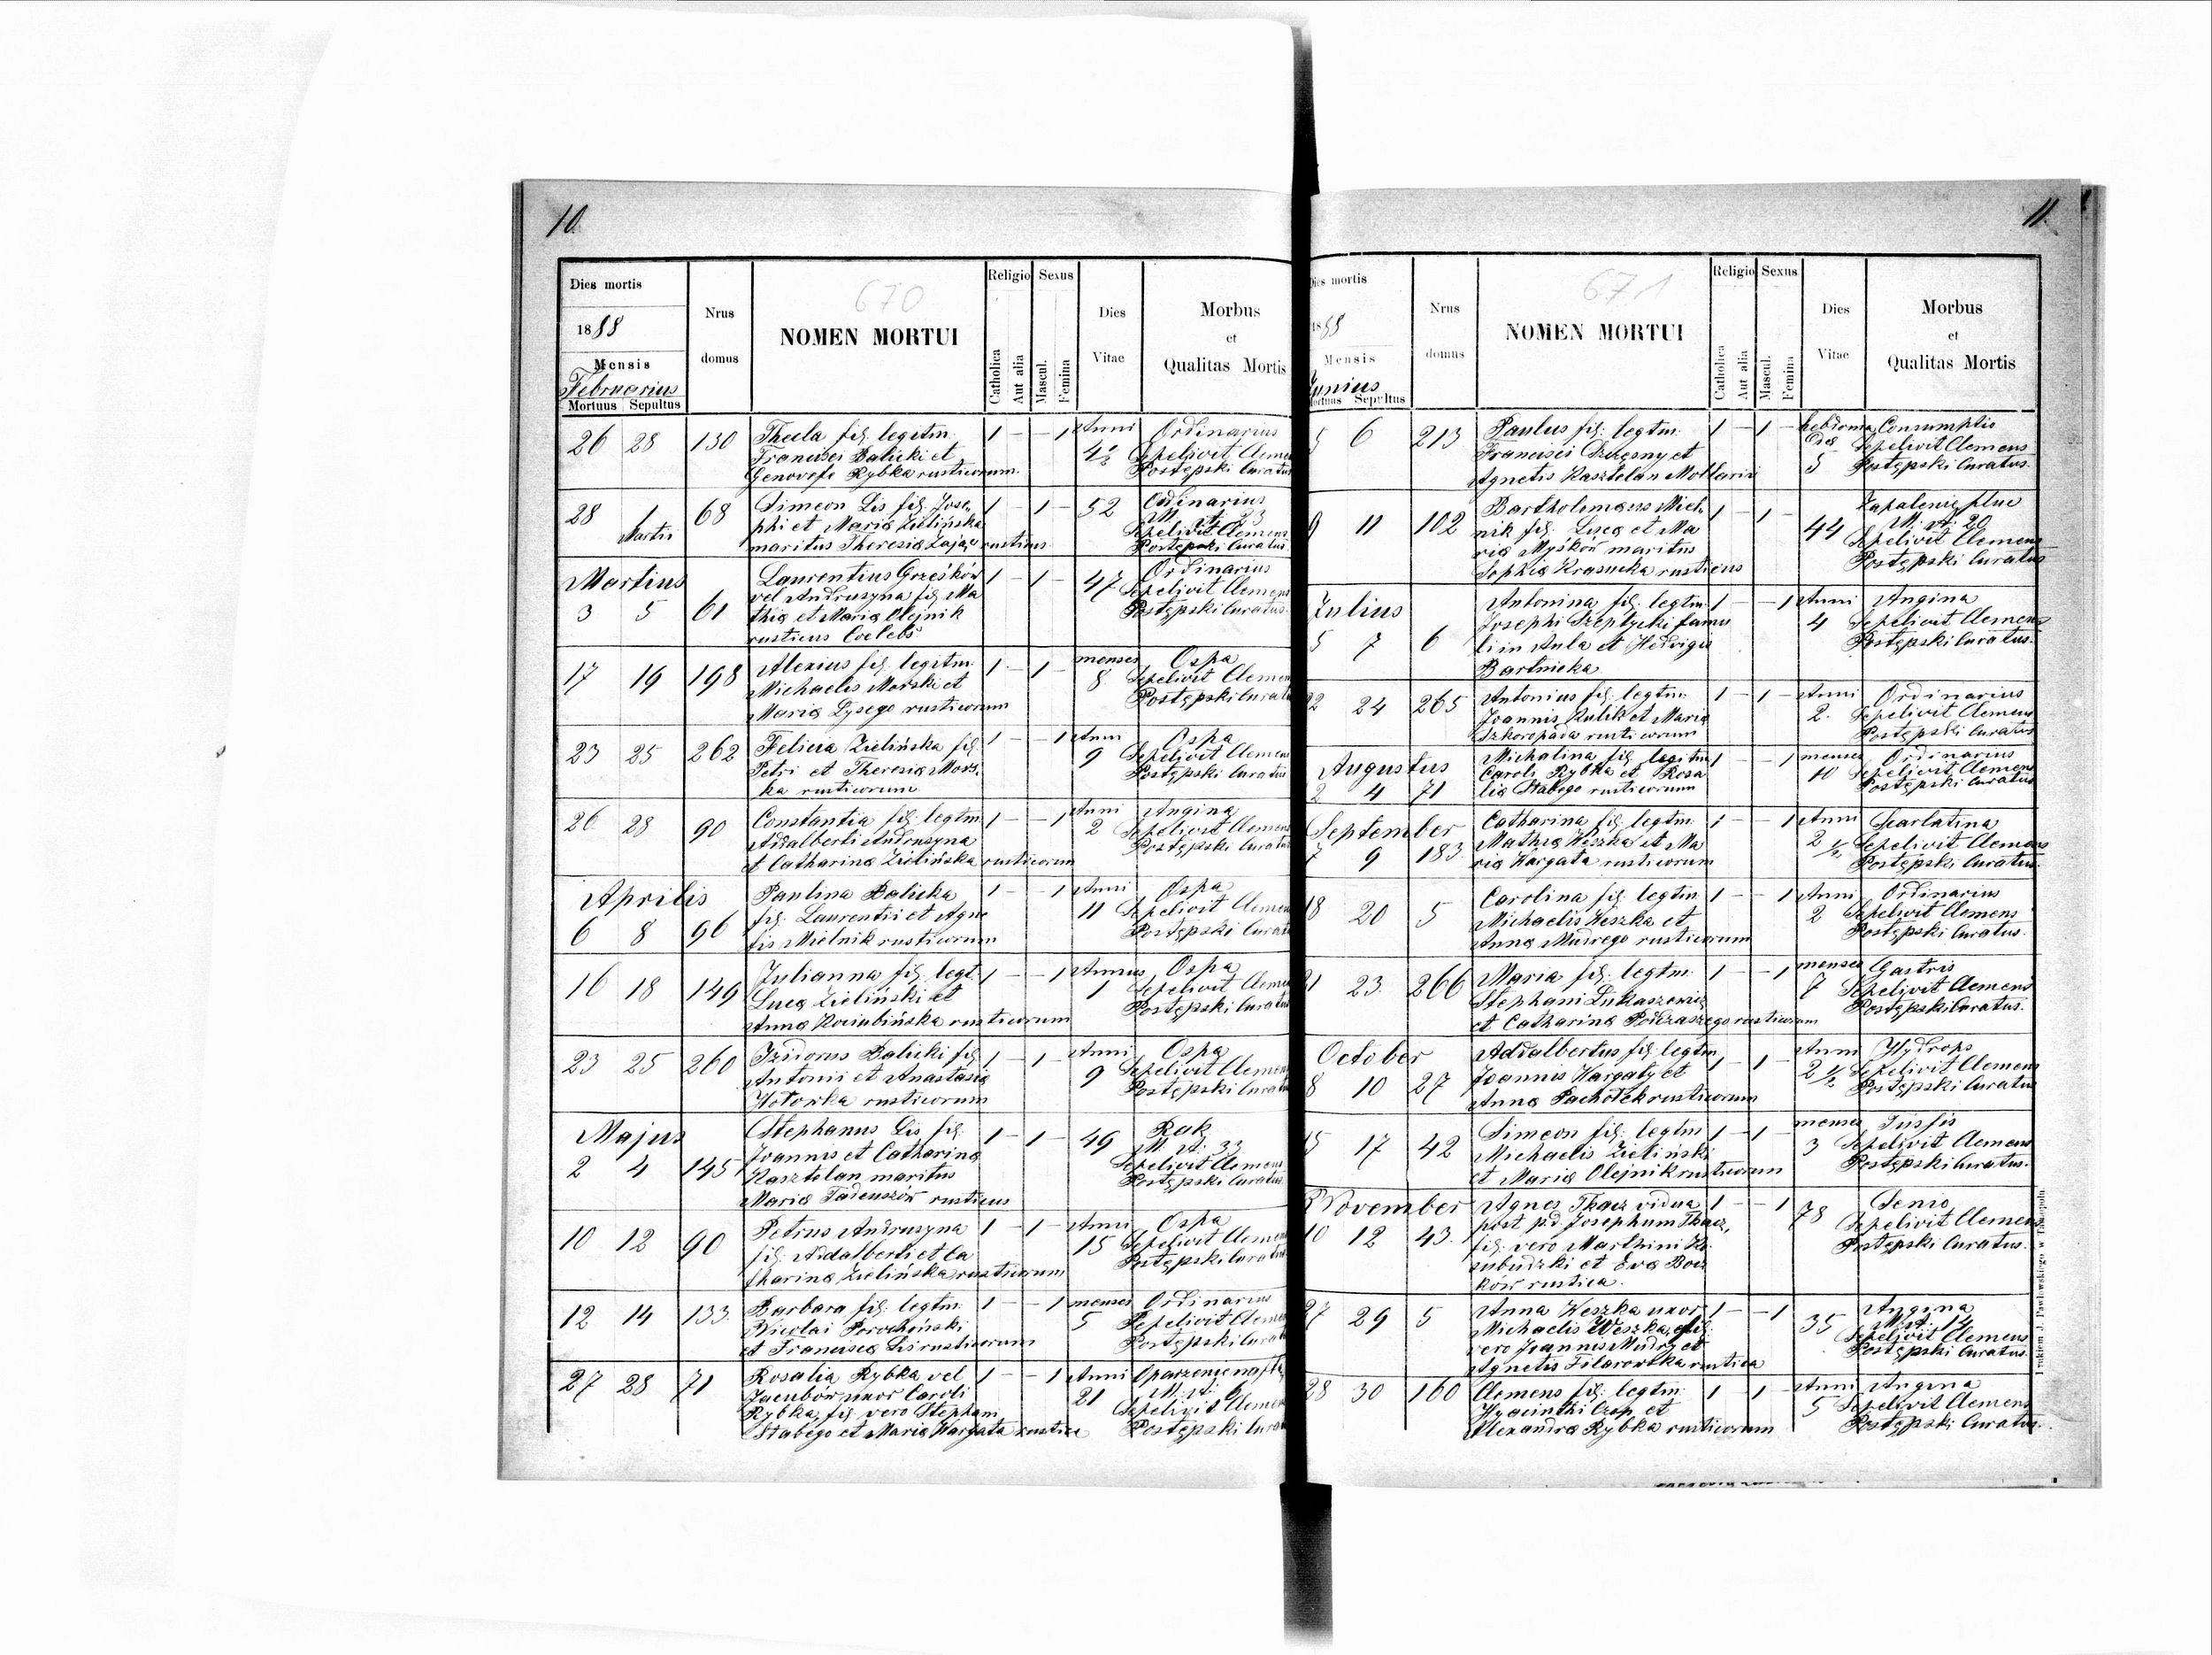 10.
Dies mortis
1888
Mensis
Februarius
Mortuus Sepultus
Nrus domus
670
NOMEN MORTUI
Religio
Catholica
Aut alia
Sexus
Mascul.
Femina
Dies Vitae
Morbus
et
Qualitas Mortis
26 28 130 Thecla fil. legitm. 1 – – 1 Anni Ordinarius
Francisci Balicki et 4½ Sepelivit Clemens
Genovefa Rybka rusticorum. Postępski Curatus
28 1 68 Simeon Lis fil. Jose- 1 – 1 – 52 Ordinarius
Martii phi et Maria Zielińska M. A. 23
maritus Theresia Zając rusticus Sepelivit Clemens
Postępski Curatus
Martius Laurentius Grześków 1 – 1 – 47 Ordinarius
3 5 61 vel Andruszyna fil. Ma Sepelivit Clemens
thia et Maria Olejnik Postępski Curatus.
rusticus Coelebs
17 19 198 Alexius fil. legitm. 1 – 1 – menses Ospa
Michaelis Morski et 8 Sepelivit Clemens
Maria Łysego rusticorum Postępski Curatus
23 25 262 Felicia Zielińska fil. 1 – – 1 Anni Ospa
Petri et Theresia Mors. 9 Sepelivit Clemens
ka rusticorum Postępski Curatus
26 28 90 Constantia fil. legtm 1 – – 1 Anni Angina
Adalberti Andruszyna 2 Sepelivit Clemens
et Catharina Zielińska rusticorum Postępski Curatus
Aprilis Paulina Balicka 1 – – 1 Anni Ospa
6 8 96 fil. Laurentii et Agne 11 Sepelivit Clemens
tis Mielnik rusticorum Postępski Curatus
16 18 149 Julianna fil. legt. 1 – – 1 Annus Ospa
Luca Zieliński et 1 Sepelivit Clemens
Anna Kociubińska rusticorum Postępski Curatus
23 25 260 Izidorus Balicki fil. 1 – 1 – Anni Ospa
Antonii et Anastasia 9 Sepelivit Clemens
Hotowka rusticorum Postępski Curatus
Majus Stephanus Lis fil. 1 – 1 – 49 Rak
2 4 145 Joannis et Catharina M. A. 33
Kasztelan maritus Sepelivit Clemens
Maria Tadeuszów rusticus Postępski Curatus
10 12 90 Petrus Andruszyna 1 – 1 – Anni Ospa
fil. Adalberti et Ca 15 Sepelivit Clemens
tharina Zielińska rusticorum Postępski Curatus
12 14 133. Barbara fil. legtm. 1 – – 1 menses Ordinarius
Nicolai Porochiński 5 Sepelivit Clemens
et Francisca Lis rusticorum Postępski Curatus
27 28 71 Rosalia Rybka vel 1 – – 1 Anni Oparzenie naftą
Jacubów uxor Caroli 21 M. A. 6
Rybka, fil. vero Stephani Sepelivit Clemens
Stabego et Maria Hargata rustica Postępski Curatus
11.
Dies mortis
1888
Mensis
Junius
Mortuus Sepultus
Nrus domus
671
NOMEN MORTUI
Religio
Catholica
Aut alia
Sexus
Mascul.
Femina
Dies Vitae
Morbus
et
Qualitas Mortis
5 6 213 Paulus fil. legtm. 1 – 1 – hebdoma Consumptio
Francisci Dziegsny et des Sepelivit Clemens
Agnetis Kasztelan 3 Postępski Curatus.
9 11 102 Bartholomaeus Miel- 1 – 1 – 44 Zapalenie płuc
nik fil. Luca et Ma M. A. 20
ria Myśków maritus Sepelivit Clemens
Sophia Krasucka rusticus Postępski Curatus
Julius Antonina fil. legtm. 1 – – 1 Anni Angina
5 7 6 Josephi Szeptycki famu 4 Sepelivit Clemens
li in Aula et Hedvigis Postępski Curatus.
Bartnicka
22 24 265 Antonius fil. legtm. 1 – 1 – Anni Ordinarius
Joannis Kulik et Maria 2. Sepelivit Clemens
Szkoropada rusticorum Postępski Curatus
Augustus Michalina fil. legitm 1 – – 1 menses Ordinarius
2 4 71 Caroli Rybka et Rosa 10 Sepelivit Clemens
lia Stabego rusticorum Postępski Curatus
September Catharina fil. legtm. 1 – – 1 Anni Scarlatina
7 9 183. Mathia Heszka et Ma 2½ Sepelivit Clemens
ria Hargata rusticorum Postępski Curatus.
18 20 5 Carolina fil. legtm 1 – – 1 Anni Ordinarius
Michaelis Heszka et 2 Sepelivit Clemens
Anna Mudrego rusticorum Postępski Curatus.
21 23. 266 Maria fil. legtm. 1 – – 1 menses Gastris
Stephani Łukaszewicz 7 Sepelivit Clemens
et Catharina Podzaszego rusticorum Postępski Curatus.
October Adalbertus fil. legtm 1 – 1 – Anni Hydrops
8 10 27 Joannis Hargaty et 2½ Sepelivit Clemens
Anna Pachołek rusticorum Postępski Curatus
15 17 42 Simeon fil. legtm 1 – 1 – menses Tussis
Michaelis Zieliński 3 Sepelivit Clemens
et Maria Olejnik rusticorum Postępski Curatus.
November Agnes Tkacz vidua 1 – – 1 78 Senio
10 12 43. post p.d. Josephum Tkacz, Sepelivit Clemens
fil. vero Marthini Ko- Postępski Curatus.
et Eva Boż
ków rustica.
27 29 5 Anna Heszka uxor 1 – – 1 35 Angina
Michaelis Weszka, fil. M. A. 14
vero Joannis Mudry et Sepelivit Clemens
Agnetis Filarowska rustica Postępski Curatus
28 30 160 Clemens fil. legtm. 1 – 1 – Anni Angina
Hyacinthi Czop et 5 Sepelivit Clemens
Alexandra Rybka rusticorum Postępski Curatus.
Drukiem J. Pawłowskiego w Tarnopolu